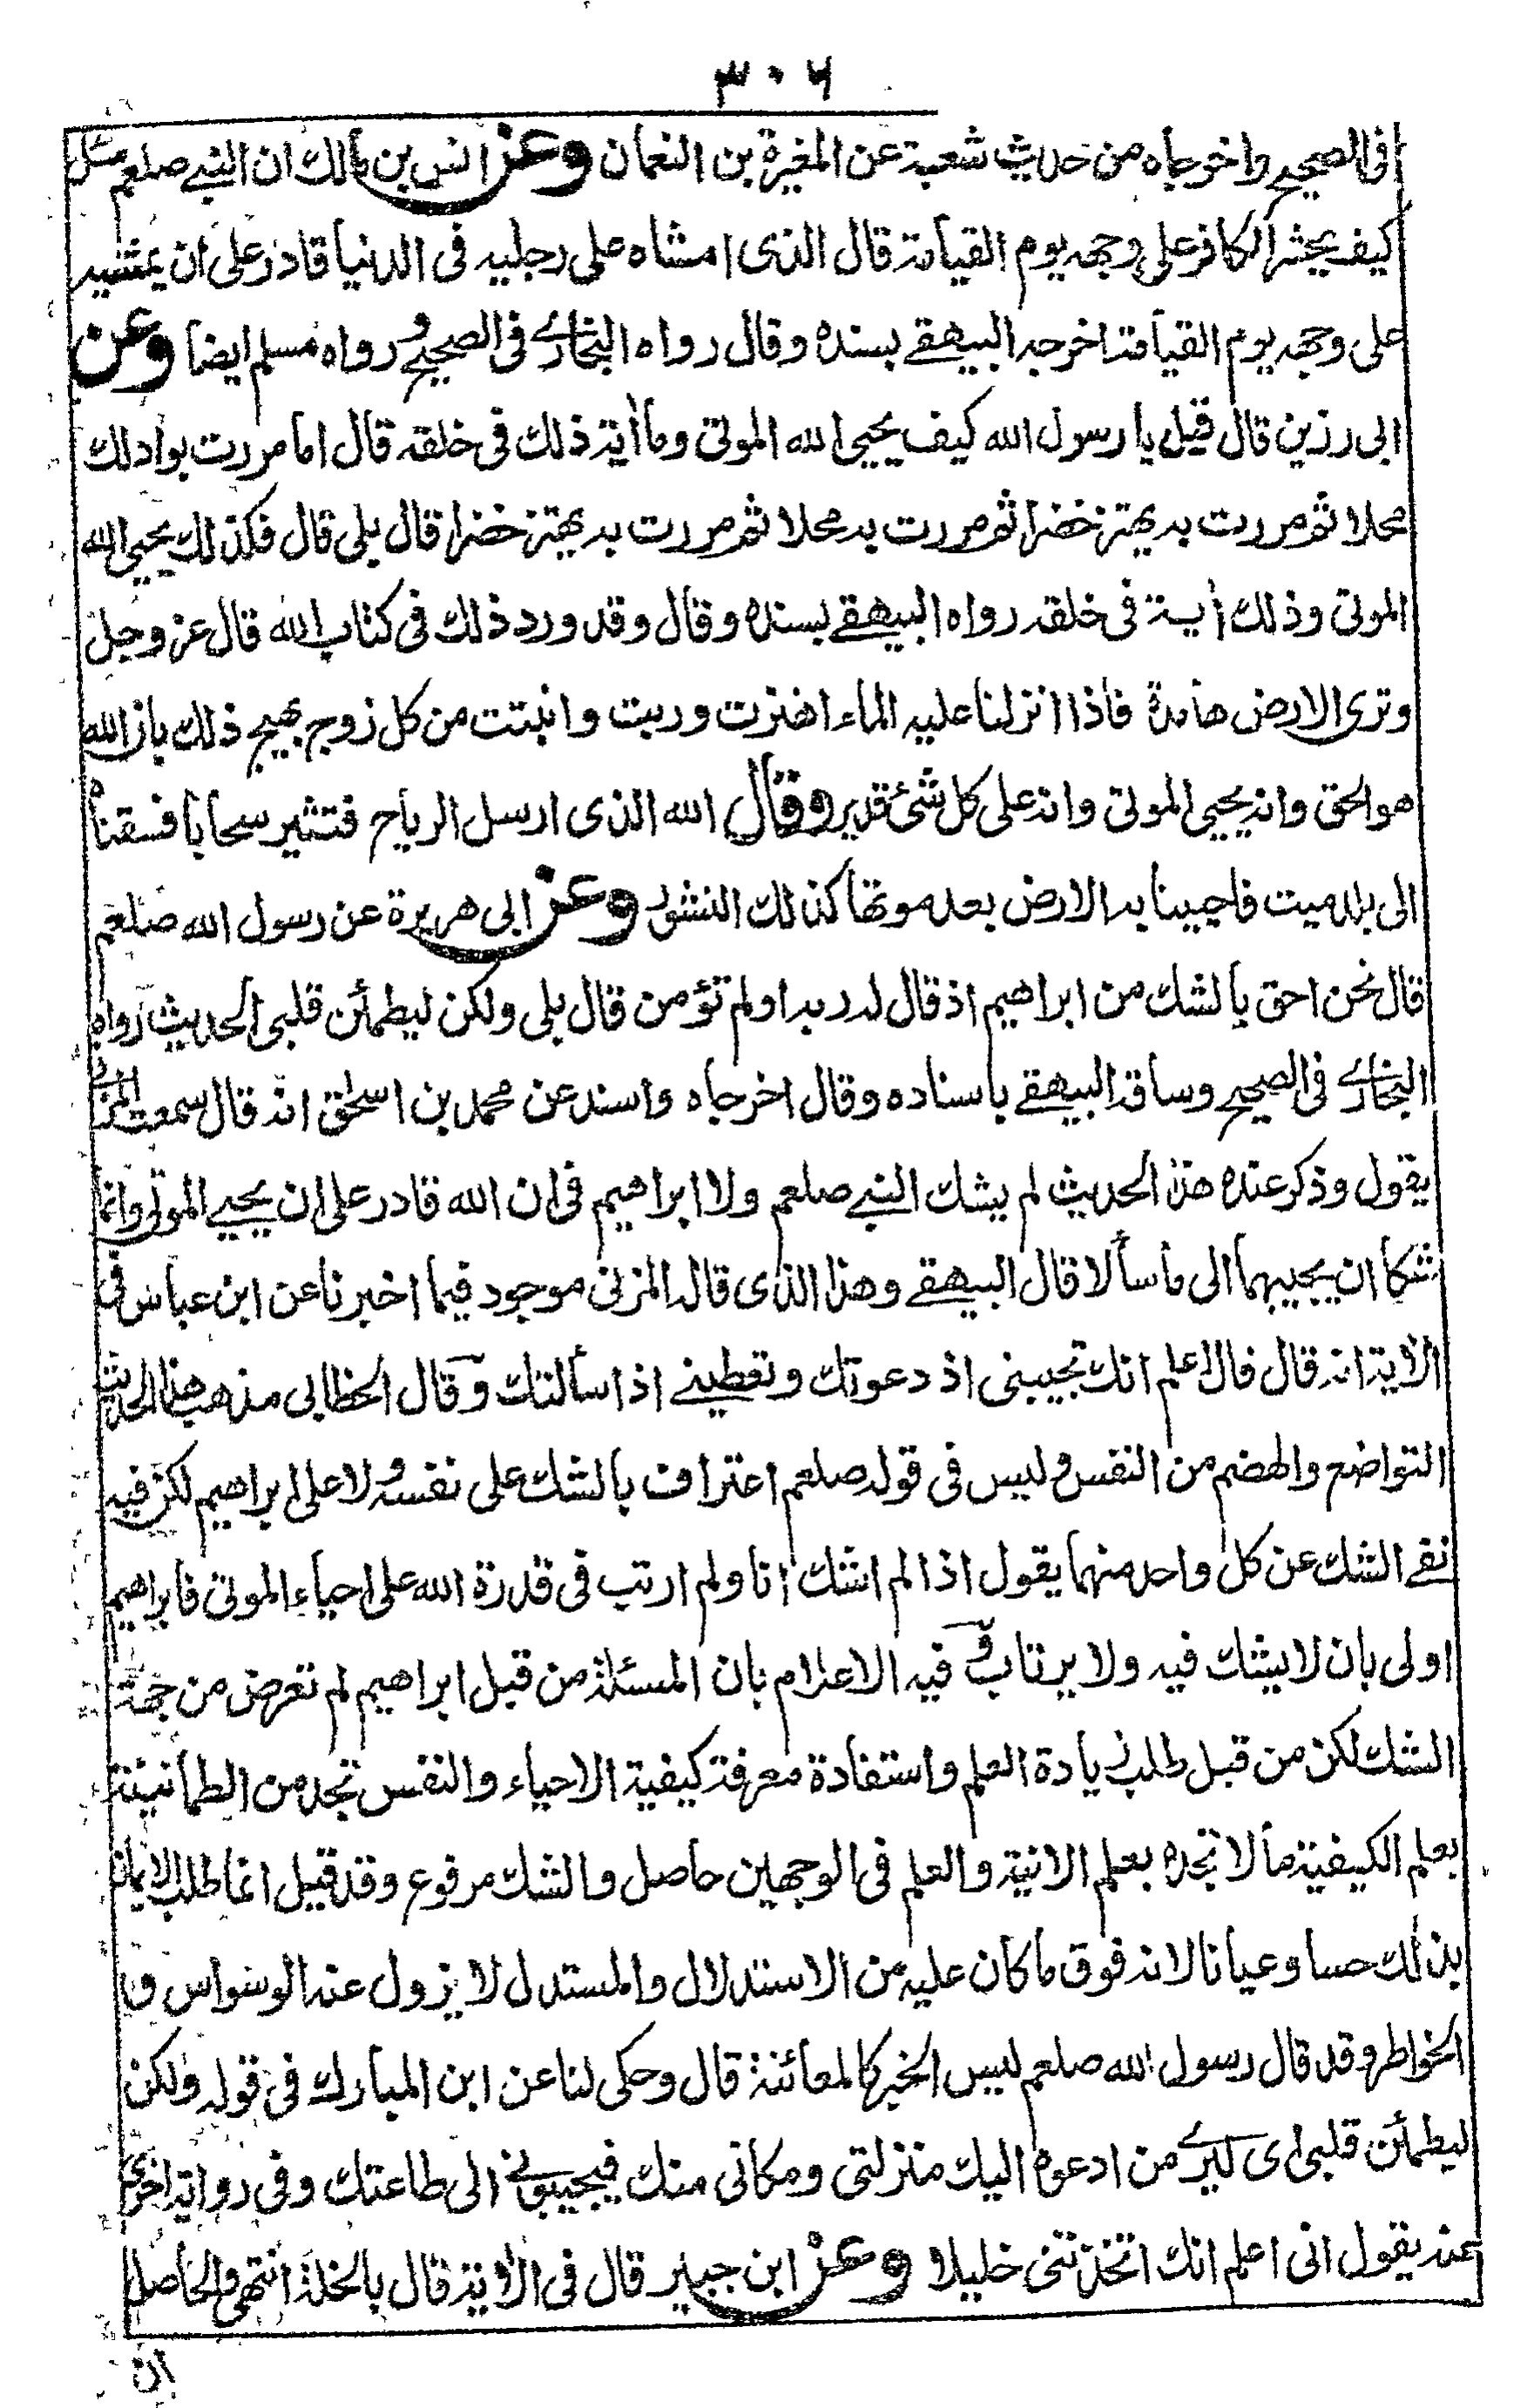 ٣٠٦
فى الصحيح واخرجاه من حديث شعبة عن المغيرة بن النعمان وعن انس بن مالك ان النبي صلعم سئل
كيف يحشر الكافر على وجهه يوم القيامة قال الذى امشاه على رجليه فى الدنيا قادر على ان يمشيه
على وجهه يوم القيامة اخرجه البيهقي بسنده وقال رواه البخاري فى الصحيح و رواه مسلم ايضا وعن
ابى رزين قال قيل يا رسول الله كيف يحيى الله الموتى وما اية ذلك فى خلقه قال اما مررت بوادلك
محلا ثم مررت به يهتز خضرا ثم مررت به محلا ثم مررت به يهتز خضرا قال بلى قال فكذلك يحيى الله
الموتى وذلك اية فى خلقه رواه البيهقي بسنده وقال وقد ورد ذلك فى كتاب الله قال عز وجل
وترى الارض هامدة فاذا انزلنا عليه الماء اهتزت وربت وانبتت من كل زوج بهيج ذلك بان الله
هو الحق وانه يحيى الموتى وانه على كل شئ قدير وقال الله الذى ارسل الرياح فتثير سحابا فسقناه
الى بلد ميت فاحيينا به الارض بعد موتها كذلك النشور وعن ابى هريرة عن رسول الله صلعم
قال نحن احق بالشك من ابراهيم اذ قال له ربه اولم تؤمن قال بلى ولكن ليطمئن قلبى الحديث رواه
البخاري فى الصحيح وساقه البيهقي باسناده وقال اخرجاه واسند عن محمد بن اسحق انه قال سمعت المزنى
يقول وذكر عنده هذا الحديث لم يشك النبي صلعم ولا ابراهيم فى ان الله قادر على ان يحيي الموتى وانما
شكا ان يجيبهما الى ما سألا قال البيهقي وهذا الذى قاله المزنى موجود فيما اخبرنا عن ابن عباس فى
الاية انه قال قال اعلم انك تجيبنى اذ دعوتك وتعطينے اذا سألتك وقال الخطابى مذهب هذا الحديث
التواضع والهضم من النفس وليس فى قوله صلعم اعتراف بالشك على نفسه ولا على ابراهيم لكن فيه
نفے الشك عن كل واحد منهما يقول اذا لم اشك انا ولم ارتب فى قدرة الله على احياء الموتى فابراهيم
اولى بان لا يشك فيه ولا يرتاب و فيه الاعلام بان المسئلة من قبل ابراهيم لم تعرض من جهة
الشك لكن من قبل طلب زيادة العلم واستفادة معرفة كيفية الاحياء والنفس تجد من الطمانينة
بعلم الكيفية ما لا تجده بعلم الانية والعلم فى الوجهين حاصل والشك مرفوع وقد قيل انما طلب الايمان
بذلك حسا وعيانا لانه فوق ما كان عليه من الاستدلال والمستدل لا يزول عنه الوسواس و
الخواطر وقد قال رسول الله صلعم ليس الخبر كالمعائنة قال وحكى لنا عن ابن المبارك فى قوله ولكن
ليطمئن قلبى اى ليرے من ادعوه اليك منزلتى ومكانى منك فيجيبونے الى طاعتك وفى رواية اخرى
عنه يقول انى اعلم انك اتخذتنى خليلا وعن ابن جبير قال فى الاية قال بالخلة انتهى والحاصل
ان